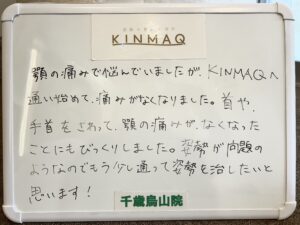 KINMAQ
顎の痛みで悩んでいましたが、KINMAQへ
通い始めて、痛みがなくなりました。首や、
手首をさわって、顎の痛みが、なくなった
ことにもびっくりしました。姿勢が問題の
ようなのでもう少し通って姿勢を治したいと
思います！
千歳烏山院